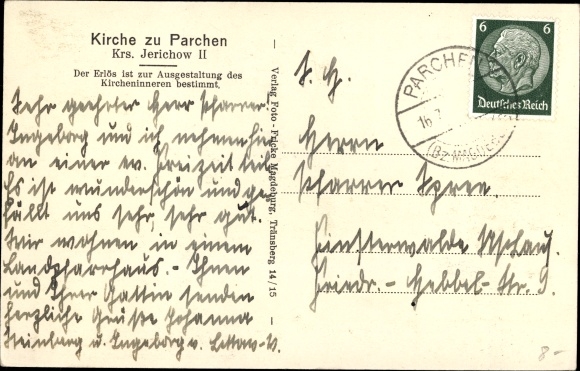 Kirche zu Parchen
Krs. Jerichow II
Der Erlös ist zur Ausgestaltung des
Kircheninneren bestimmt.
Sehr geehrter Herr Pfarrer.
Ingeborg und ich nehmen hier
an einer ev. Freizeit teil.
Es ist wunderschön und ge-
fällt uns sehr, sehr gut.
Wir wohnen in einem
Landpfarrhaus. - Ihnen
und Ihrer Gattin senden
herzliche Grüße Johanna
Steinberg u. Ingeborg v. Lettow-V.
Verlag Foto-Fricke Magdeburg, Tränsberg 14/15
S. H.
Herrn
Pfarrer Spree.
Finsterwalde
Friedr.-Hebbel-Str. 9.
6 6
Deutsches Reich
PARCHEN
16.7.
(Bz. MAGDEB
8-